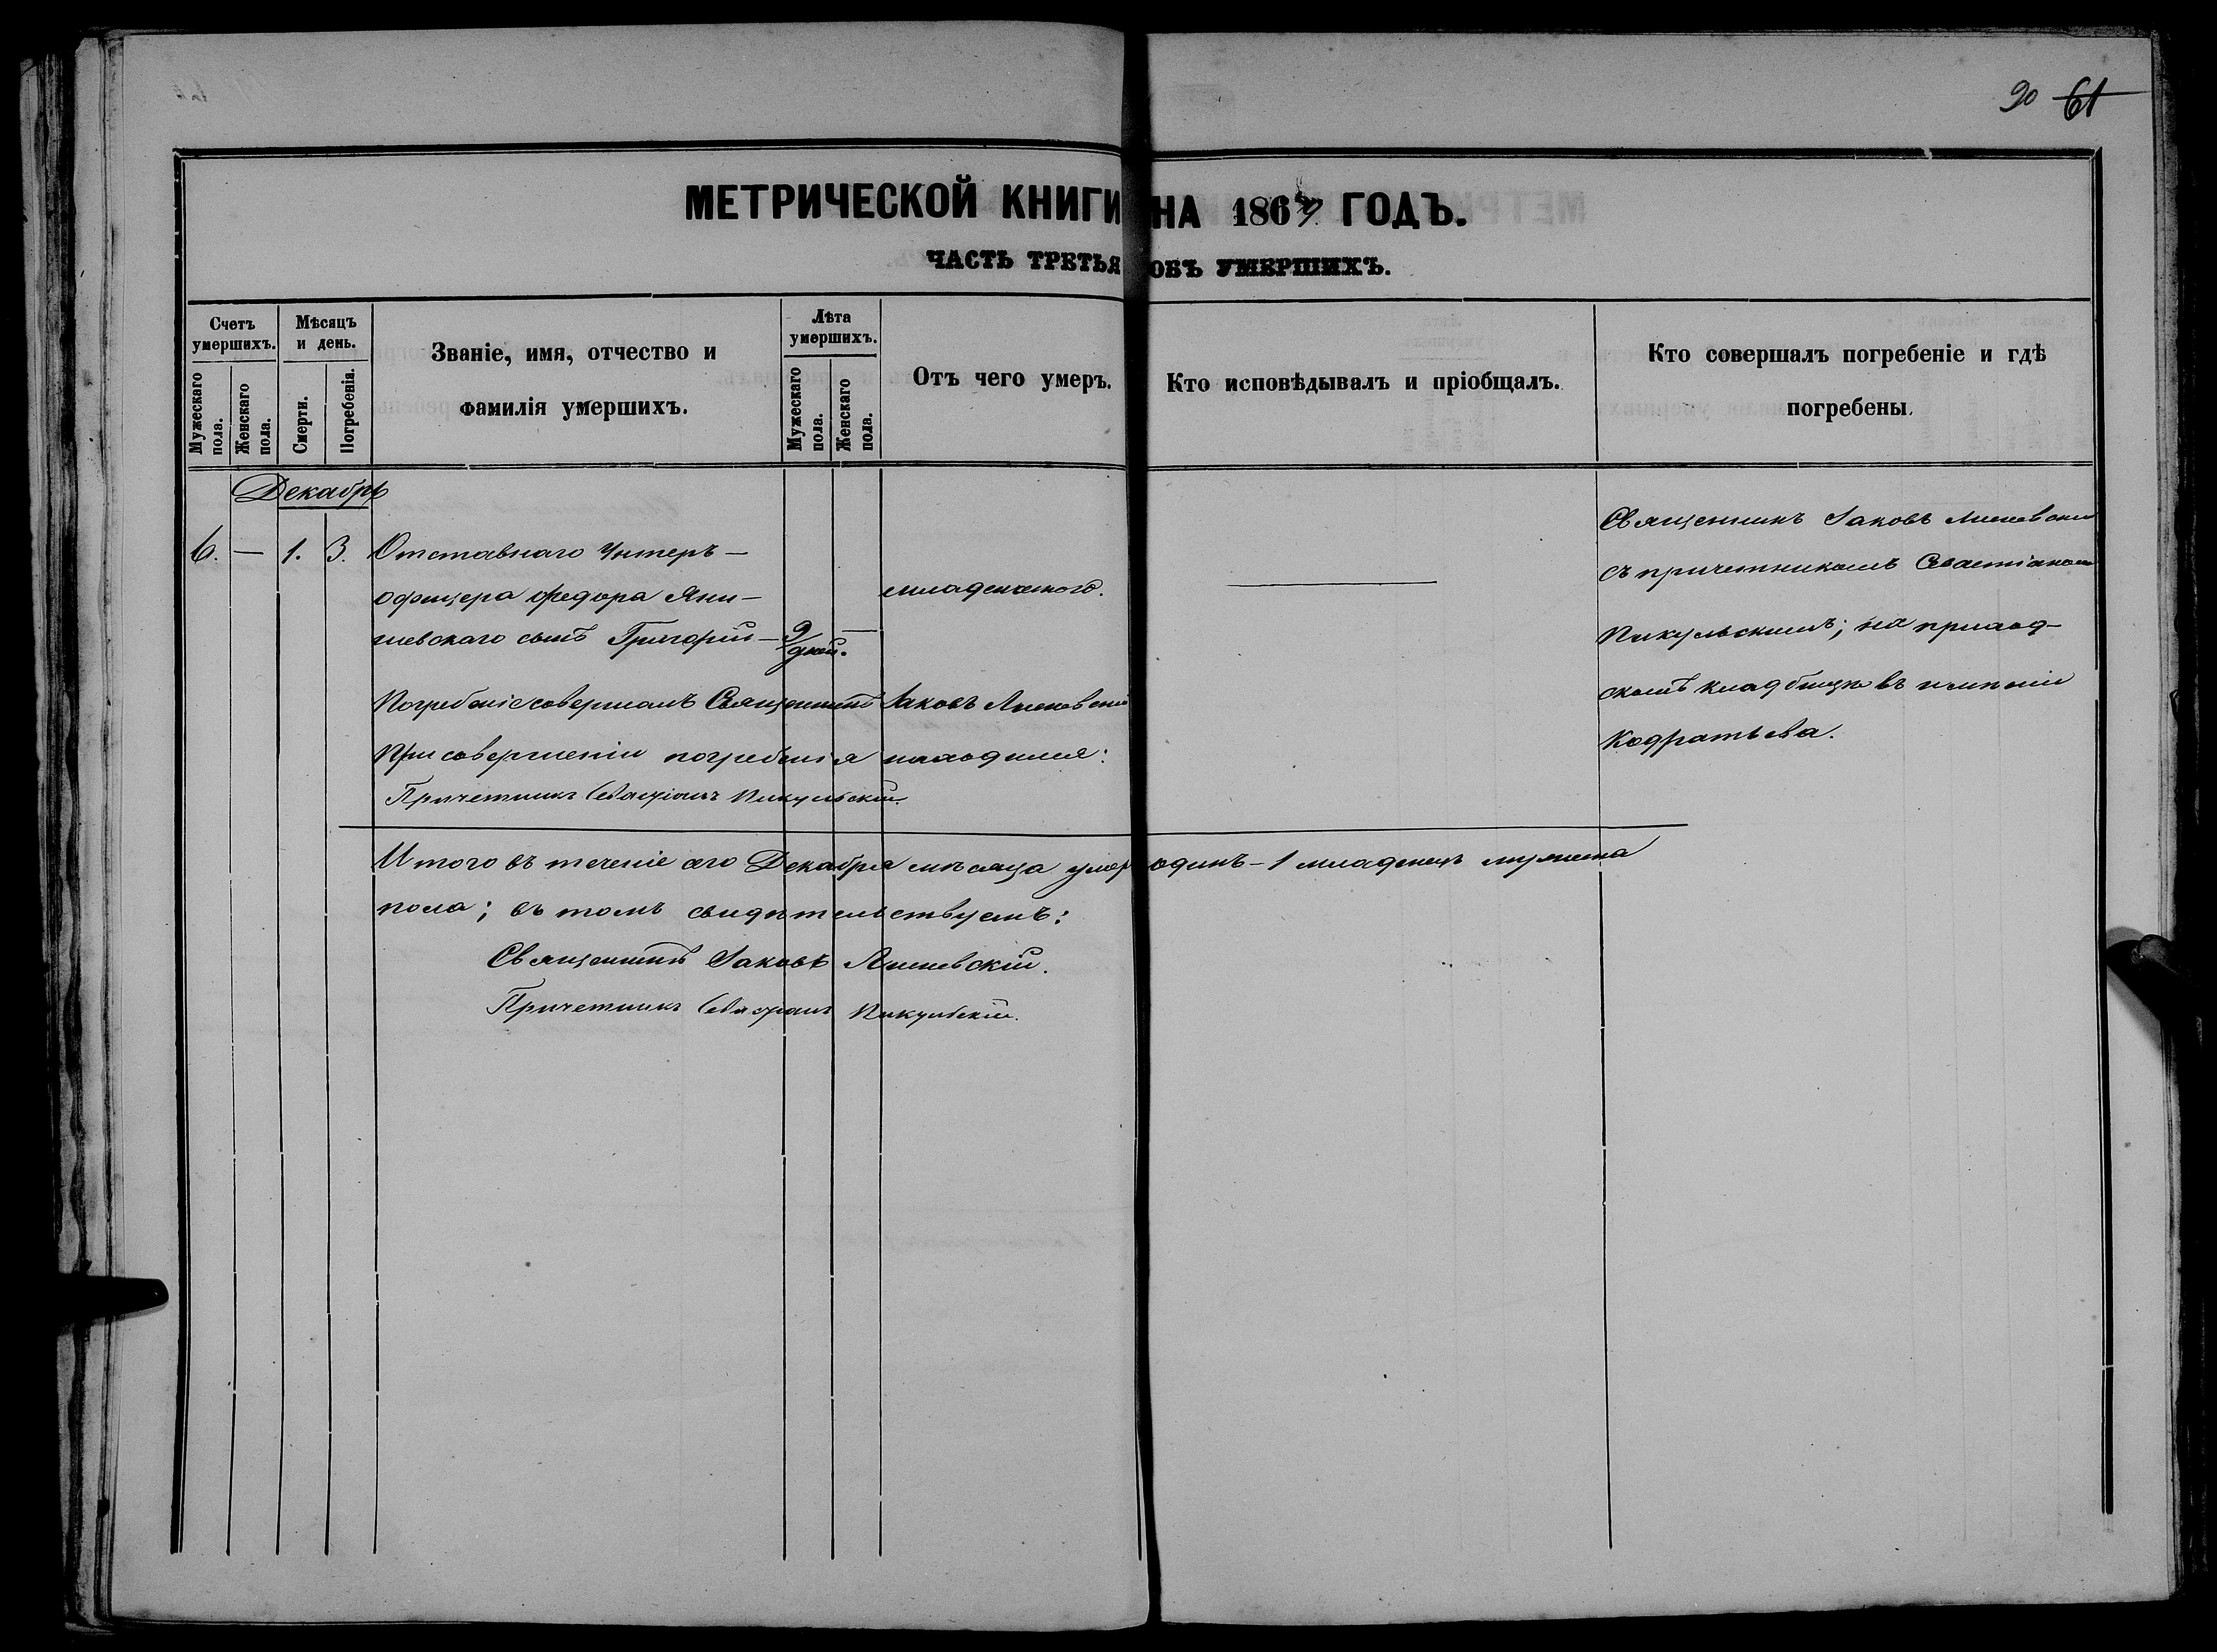 90 61
МЕТРИЧЕСКОЙ КНИГИ НА 1867 ГОДЪ.
ЧАСТЬ ТРЕТЬЯ ОБЪ УМЕРШИХЪ.
Счетъ умершихъ.
Мужескаго пола.
Женскаго пола.
Мѣсяцъ и день.
Смерти.
Погребенія.
Званіе, имя, отчество и
фамилія умершихъ.
Лѣта умершихъ.
Мужескаго пола.
Женскаго пола.
Отъ чего умеръ.
Кто исповѣдывалъ и пріобщалъ.
Кто совершалъ погребеніе и гдѣ
погребены.
Декабрь
6. — 1. 3. Отставнаго Унтеръ —
офицера Федора Яни —
шевскаго сынъ Григорій — 9 дней. —
младенческого.
Священникъ Іаковъ
съ причетникомъ Севастіаномъ
Пикульскимъ; на приход-
скомъ кладбищѣ въ имѣніи
Кодратьева.
Погребеніе совершалъ Священникъ Іаковъ
При совершеніи погребенія находился:
Причетникъ Севастіанъ Пикульскій.
Итого въ теченіе сего Декабря мѣсяца умеръ одинъ — 1 младенецъ мужеска
пола; въ томъ свидѣтельствуемъ:
Священникъ Іаковъ
Причетникъ Севастіанъ Пикульскій.